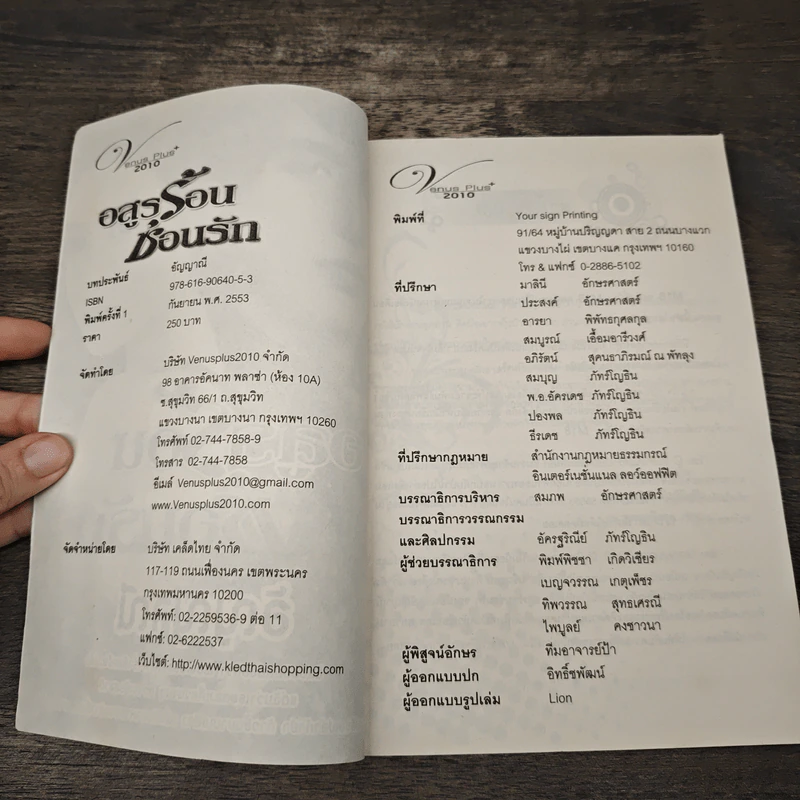 Venus Plus+
2010
อสูรร้อน
ซ่อนรัก
บทประพันธ์ อัญญาณี
ISBN 978-616-90640-5-3
พิมพ์ครั้งที่ 1 กันยายน พ.ศ. 2553
ราคา 250 บาท
จัดทำโดย บริษัท Venusplus2010 จำกัด
98 อาคารอัคนาท พลาซ่า (ห้อง 10A)
ซ.สุขุมวิท 66/1 ถ.สุขุมวิท
แขวงบางนา เขตบางนา กรุงเทพฯ 10260
โทรศัพท์ 02-744-7858-9
โทรสาร 02-744-7858
อีเมล์ Venusplus2010@gmail.com
www.Venusplus2010.com
จัดจำหน่ายโดย บริษัท เคล็ดไทย จำกัด
117-119 ถนนเฟื่องนคร เขตพระนคร
กรุงเทพมหานคร 10200
โทรศัพท์: 02-2259536-9 ต่อ 11
แฟกซ์: 02-6222537
เว็บไซต์: http://www.kledthaishopping.com
Venus Plus+
2010
พิมพ์ที่ Your sign Printing
91/64 หมู่บ้านปริญญดา สาย 2 ถนนบางแวก
แขวงบางไผ่ เขตบางแค กรุงเทพฯ 10160
โทร & แฟกซ์ 0-2886-5102
ที่ปรึกษา มาลินี อักษรศาสตร์
ประสงค์ อักษรศาสตร์
อารยา พิพัทธกุศลกุล
สมบูรณ์ เอื้อมอารีวงศ์
อภิรัตน์ สุคนธาภิรมณ์ ณ พัทลุง
สมบุญ ภัทร์โญธิน
พ.อ.อัครเดช ภัทร์โญธิน
ปองพล ภัทร์โญธิน
ธีรเดช ภัทร์โญธิน
ที่ปรึกษากฎหมาย สำนักงานกฎหมายธรรมกรณ์
อินเตอร์เนชั่นแนล ลอว์ออฟฟิต
บรรณาธิการบริหาร สมภพ อักษรศาสตร์
บรรณาธิการวรรณกรรม
และศิลปกรรม อัครฐริณีย์ ภัทร์โญธิน
ผู้ช่วยบรรณาธิการ พิมพ์พิชชา เกิดวิเชียร
เบญจวรรณ เกตุเพ็ชร
ทิพวรรณ สุทธเศรณี
ไพบูลย์ คงชาวนา
ผู้พิสูจน์อักษร ทีมอาจารย์ป้า
ผู้ออกแบบปก อิทธิ์ชพัฒน์
ผู้ออกแบบรูปเล่ม Lion